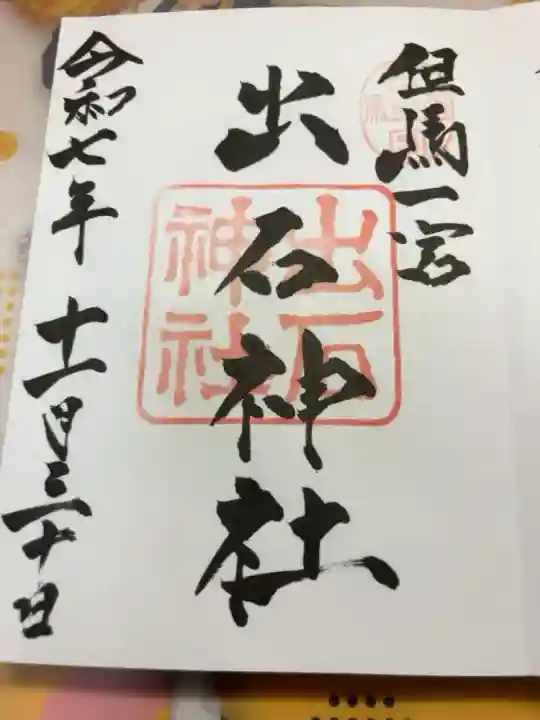 但馬一宮
出石神社
出石神社
令和七年 十一月三十日